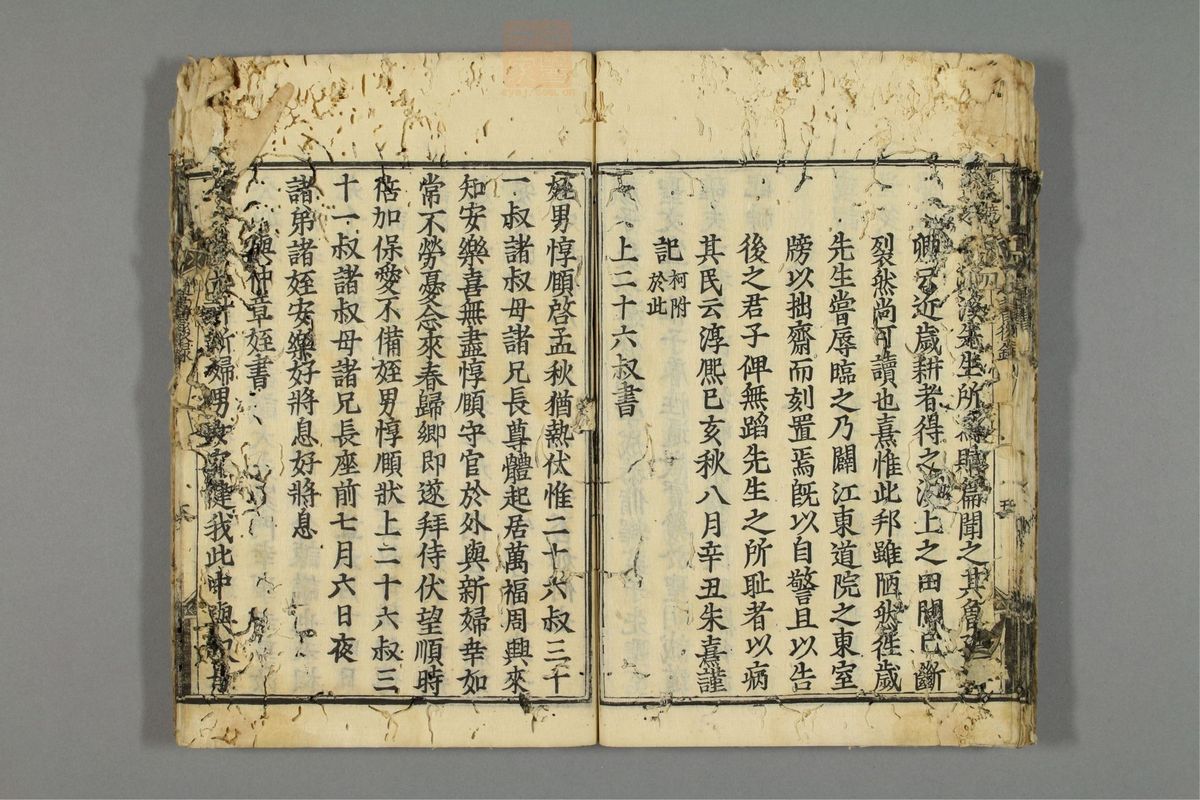 濂溪先生所
賦篇聞之其曾孫
卿云近歲耕者得之溪上之田間已斷
裂然尚可讀也熹惟此邦雖陋然往歲
先生嘗辱臨之乃闢江東道院之東室
牓以拙齋而刻置焉旣以自警且以告
後之君子俾無蹈先生之所耻者以病
其民云淳熈已亥秋八月辛丑朱熹謹
記 柯附於此
上二十六叔書
姪男惇頤啓孟秋猶熱伏惟二十六叔三十
一叔諸叔母諸兄長尊體起居萬福周興來
知安樂喜無盡惇頤守官於外與新婦幸如
常不勞憂念來春歸鄉即遂拜侍伏望順時
倍加保愛不備姪男惇頤狀上二十六叔三
十一叔諸叔母諸兄長座前七月六日夜
諸弟諸姪安樂好將息好將息
與仲章姪書
新婦男女安健我此中與叔母